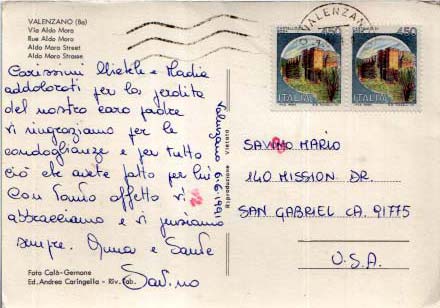 VALENZANO (Ba)
Via Aldo Moro
Rue Aldo Moro
Aldo Moro Street
Aldo Moro Strasse
Carissimi Michele e Nadia
addolorati per la perdita
del nostro caro padre
vi ringraziamo per le
condoglianze e per tutto
ciò che avete fatto per lui
Con tanto affetto vi
abbracciamo e vi pensiamo
sempre. Anna e Sante
Savino
Foto Calò-Gernone
Ed. Andrea Caringella - Riv. Tab.
Valenzano 6-6-1991
Riproduzione Vietata
VALENZANO
450
ITALIA
450
ITALIA
SAVINO MARIO
140 MISSION DR.
SAN GABRIEL CA. 91775
U.S.A.